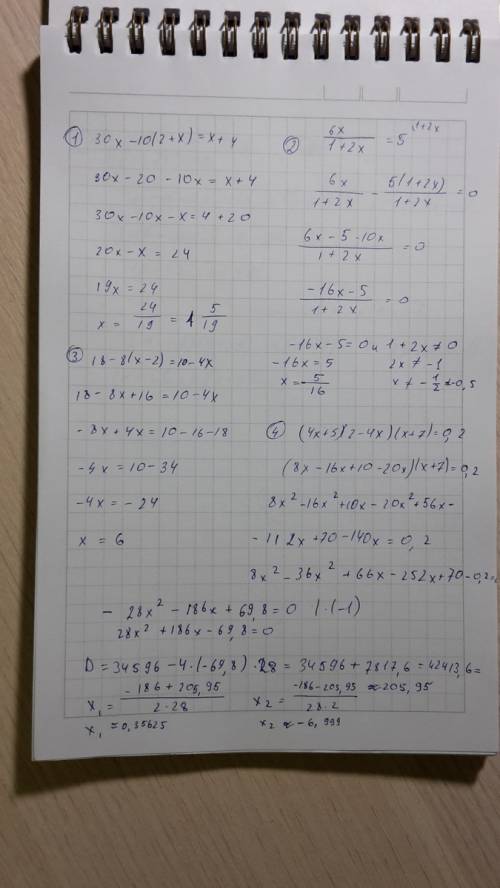 ① 30x-10(2+x)=x+4
30x-20-10x=x+4
30x-10x-x=4+20
20x-x=24
19x=24
x=24/19=1 5/19
② 6x/(1+2x)=5^(1+2x
6x/(1+2x)-5(1+2x)/(1+2x)=0
(6x-5-10x)/(1+2x)=0
(-16x-5)/(1+2x)=0
-16x-5=0 и 1+2x≠0
-16x=5 2x≠-1
x=-5/16 x≠-1/2≠-0,5
③ 18-8(x-2)=10-4x
18-8x+16=10-4x
-8x+4x=10-16-18
-4x=10-34
-4x=-24
x=6
④ (4x+5)(2-4x)(x+7)=0,2
(8x-16x+10-20x)(x+7)=0,2
8x²-16x²+10x-20x²+56x-
-112x+70-140x=0,2
8x²-36x²+66x-252x+70-0,2=
-28x²-186x+69,8=0 |·(-1)
28x²+186x-69,8=0
D=34596-4·(-69,8)·28=34596+7817,6=42413,6=
≈205,95
x₁=(-186+205,95)/(2·28) x₂=(-186-205,95)/(28·2)
x₁≈0,35625 x₂≈-6,999